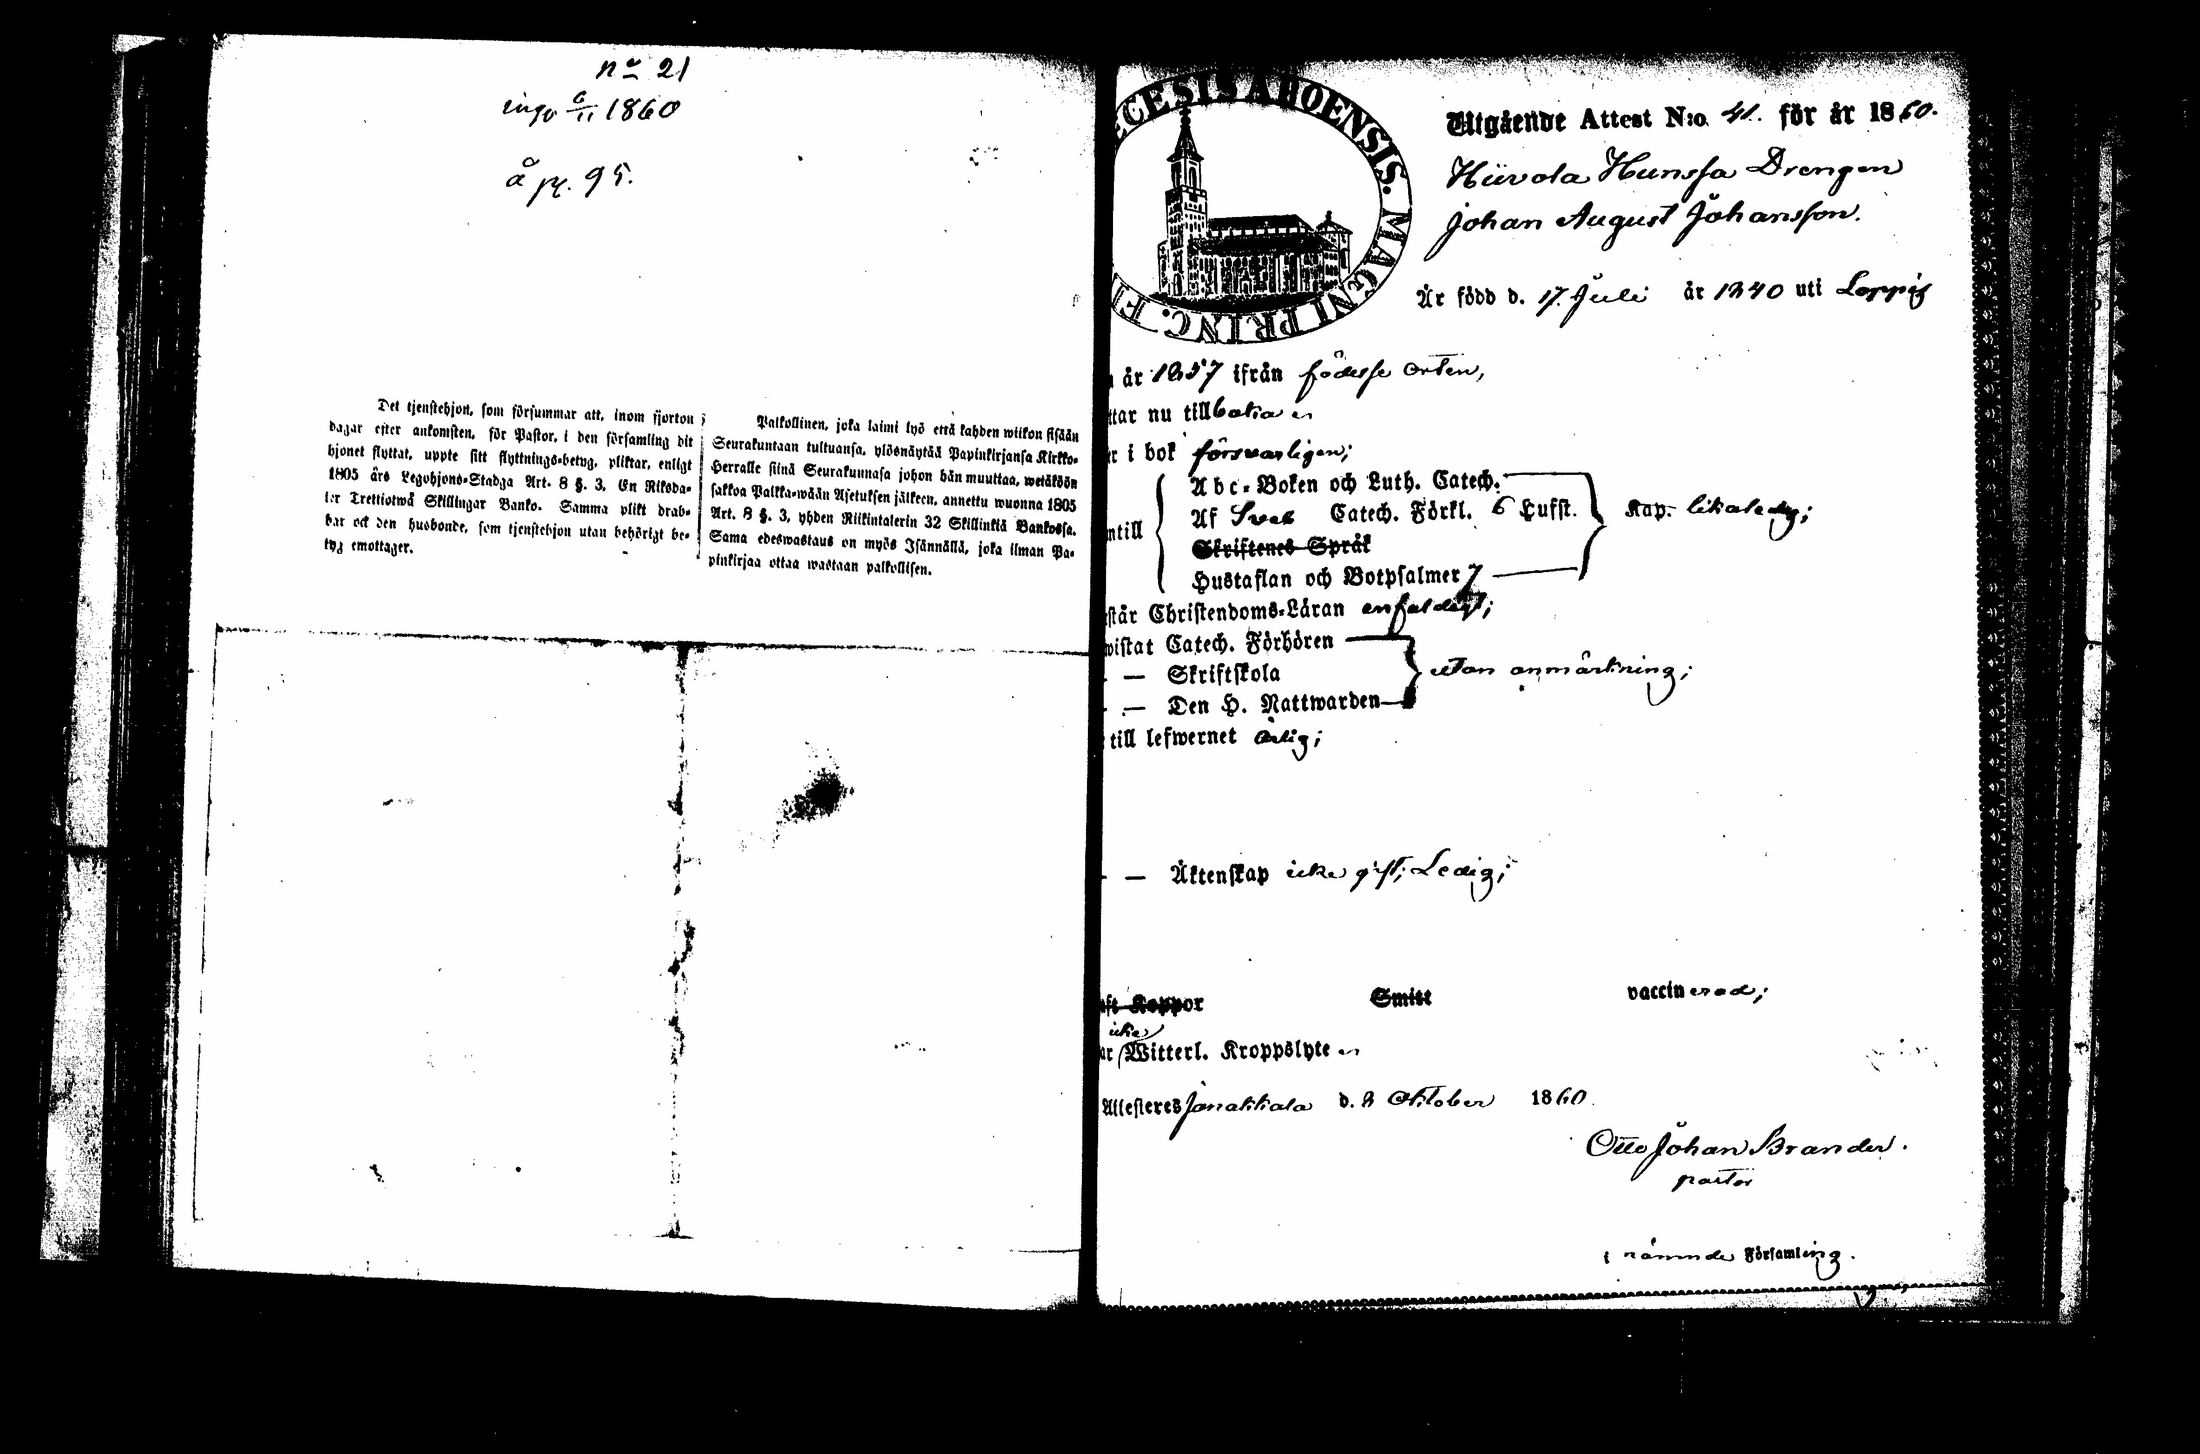 no 21
ingo 6/11 1860
å p. 95.
Det tjenstehjon, som försummar att, inom fjorton
dagar efter ankomsten, för Pastor, i den församling dit
hjonet flyttat, uppte sitt flyttnings-betyg, pliktar, enligt
1805 års Legohjons-Stadga Art. 8 §. 3, En Riksda-
ler Trettiotwå Skillingar Banko. Samma plikt drab-
bar ock den husbonde, som tjenstehjon utan behörigt be-
tyg emottager.
Palkollinen, joka laimi lyö että kahden wiikon sisään
Seurakuntaan tultuansa, ylösnäytää Papinkirjansa Kirkko-
Herralle siinä Seurakunnasa johon hän muuttaa, wetäköön
sakkoa Palkka-wään Asetuksen jälkeen, annettu wuonna 1805
Art. 8 §. 3, yhden Riikintalerin 32 Skillinkiä Bankossa.
Sama edeswastaus on myös Isännällä, joka ilman Pa-
pinkirjaa ottaa wastaan palkollisen.
CESIS ABOENSIS. MAGNI PRINC. F
Utgående Attest N:o 41. för år 1860.
Hiivola Hunssa Drengen
Johan August Johansson.
Är född d. 17. Juli år 1840 uti Loppis
år 1857 ifrån födelse orten,
ttar nu tillbaka
r i bok försvarligen;
Abc-Boken och Luth. Catech.
Af Sveb Catech. Förkl. 6 Hufst. Kap. likaledes;
ntill
Skriftenes Språk
Hustaflan och Botpsalmer 7
står Christendoms-Läran enfaldigt;
wistat Catech. Förhören
— Skriftskola utan anmärkning;
— Den H. Nattwarden
till lefwernet ärlig;
— — Äktenskap icke gift; Ledig;
ft Koppor Smitt vaccinerad;
icke
ar Witterl. Kroppslyte
Attesteres Janakkala d. 8 Oktober 1860.
Otto Johan Brander.
pastor
i nämnde Församling.